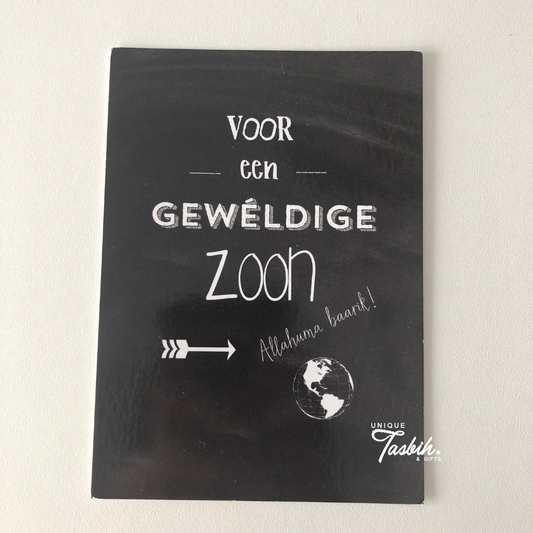 VOOR
een
GEWÉLDIGE
zoon
Allahuma baarik!
UNIQUE
Tasbih.
& GIFTS